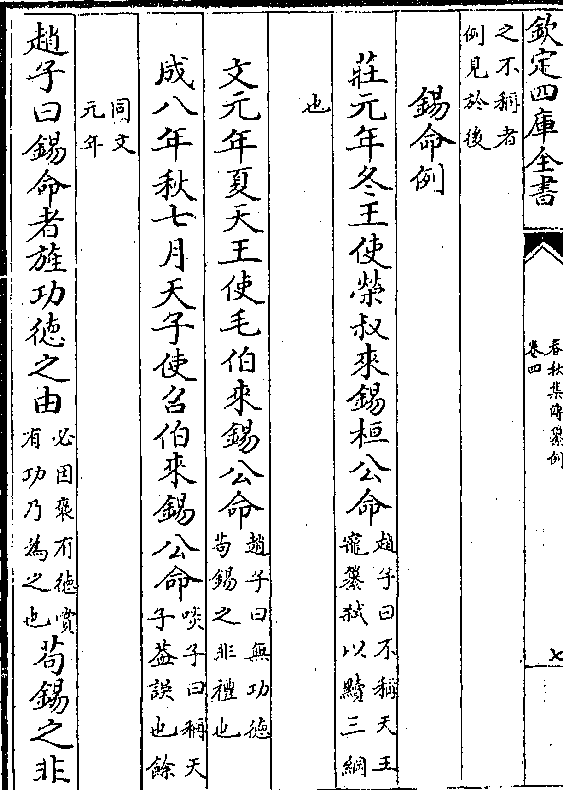 欽定四庫全書
春秋集傳纂例
卷四
之不稱者
例見於後
錫命例
莊元年冬王使榮叔來錫桓公命趙子曰不稱天王
寵簒弑以黷三綱
也
文元年夏天王使毛伯來錫公命趙子曰無功德
茍錫之非禮也
成八年秋七月天子使召伯來錫公命啖子曰稱天
子葢誤也餘
同文
元年
趙子曰錫命者旌功德之由必因襃有德賞
有功乃為之也茍錫之非